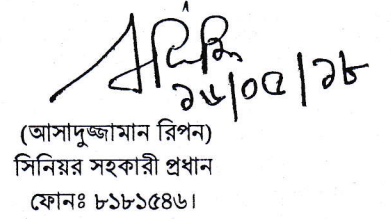 ২৬/০৫/২৮
(আসাদুজ্জামান রিপন)
সিনিয়র সহকারী প্রধান
ফোনঃ ৮১৮১৫৪৬।